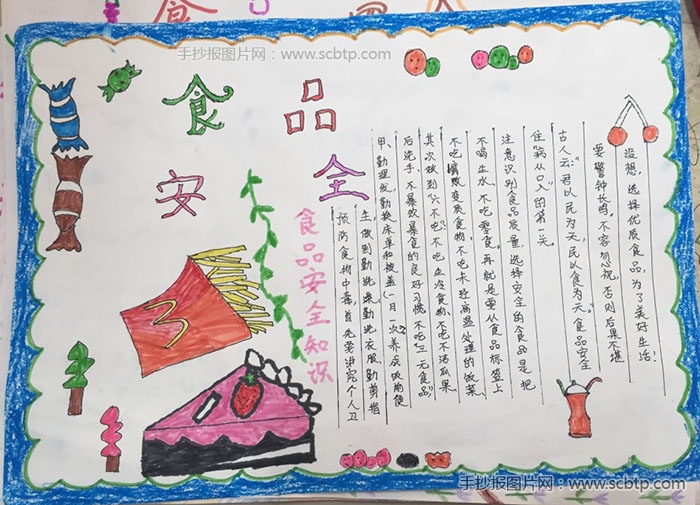 手抄报图片网：www.scbtp.com
食品
安全
食品安全知识
预防食物中毒，首先要讲究个人卫
生，做到勤洗澡勤洗衣服，勤剪指
甲，勤理发，勤换床单和被盖（一月一次）养成饭前便
后洗手、不暴饮暴食的良好习惯，不吃“三无食品”，
其次做到“六不吃”：不吃生冷食物、不吃不洁瓜果
不吃腐败变质食物、不吃未经高温处理的饭菜、
不喝生水、不吃零食。再就是要从食品标签上
注意识别食品质量，选择安全的食品是把
住“病从口入”的第一关。
古人云：“君以民为天，民以食为天。”食品安全
要警钟长鸣，不容忽视，否则后果不堪
设想，选择优质食品，为了美好生活！
手抄报图片网：www.scbtp.com